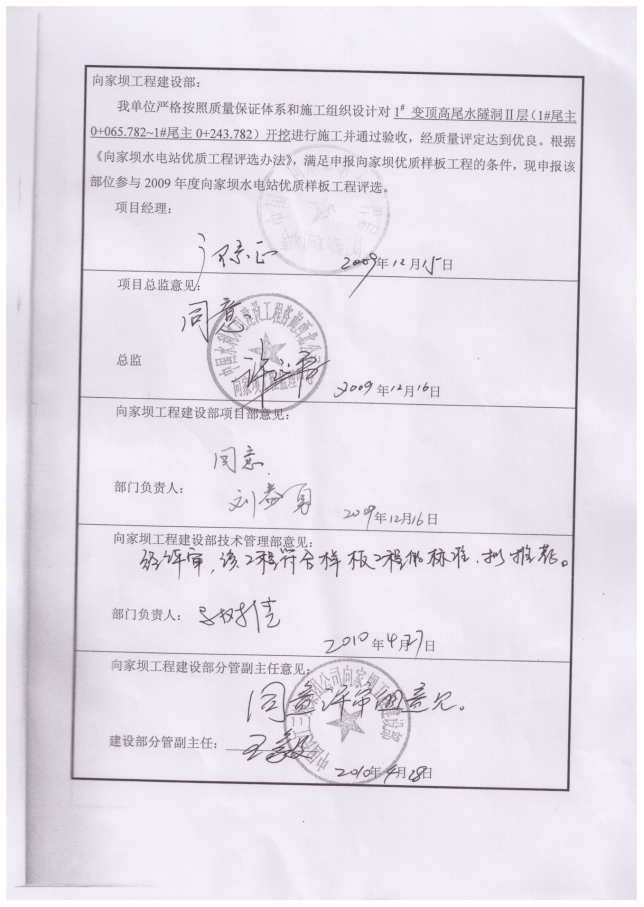 向家坝工程建设部：
我单位严格按照质量保证体系和施工组织设计对 1# 变顶高尾水隧洞Ⅱ层（1#尾主
0+065.782~1#尾主 0+243.782）开挖进行施工并通过验收，经质量评定达到优良。根据
《向家坝水电站优质工程评选办法》，满足申报向家坝优质样板工程的条件，现申报该
部位参与 2009 年度向家坝水电站优质样板工程评选。
项目经理：
2009年12月15日
项目总监意见：
同意。
总监
2009年12月16日
向家坝工程建设部项目部意见：
同意.
部门负责人：
2009年12月16日
向家坝工程建设部技术管理部意见：
经评审，该工程符合样板工程的标准，拟推荐。
部门负责人：
2010年4月27日
向家坝工程建设部分管副主任意见：
同意评审组意见。
建设部分管副主任：
王毅
2010年4月28日